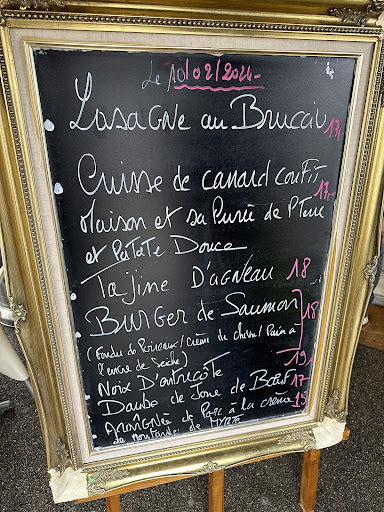 Le 10/02/2024-
Lasagne au Brucciu 17,-
Cuisse de canard confit 17,-
Maison et sa Purée de P.Terre
et Patate Douce
Tajine D'agneau 18
Burger de Saumon 18
(Fondue de Poireaux / Crème de chèvre / Pain à
l'encre de seiche)
Noix D'entrecôte 19,
Daube de Joue de Bœuf 17
Araignée de Porc à la creme 15
de moutarde de Myrte